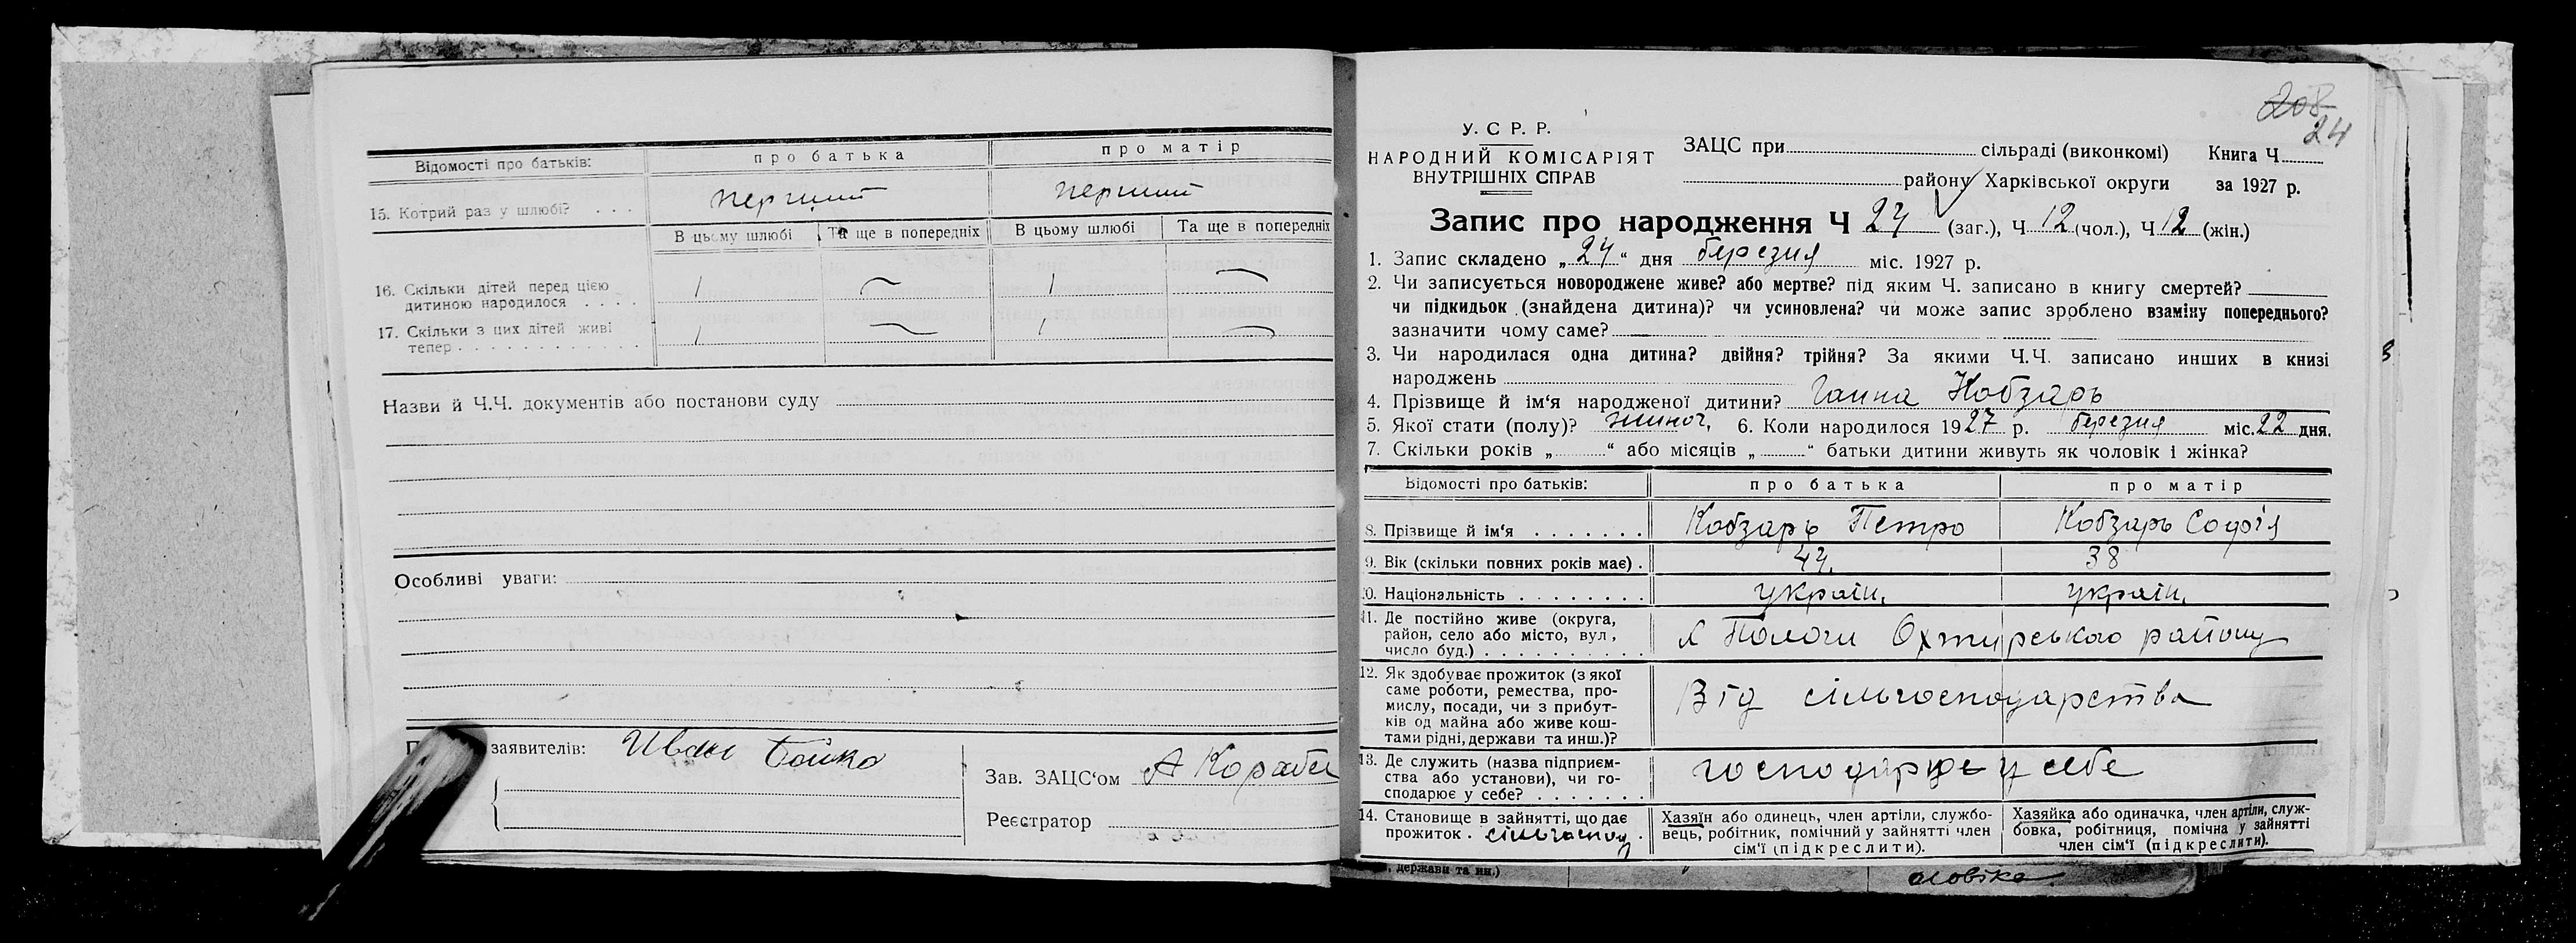 Відомості про батьків: про батька про матір
15. Котрий раз у шлюбі? . . . перший перший
В цьому шлюбі Та ще в попередніх В цьому шлюбі Та ще в попередніх
16. Скільки дітей перед цією
дитиною народилося . . . . 1 — 1 —
17. Скільки з цих дітей живі
тепер . . . . . . . . . . . . 1 — 1 —
Назви й Ч.Ч. документів або постанови суду
Особливі уваги:
заявителів: Иван Бойко
Зав. ЗАЦС‘ом А Кораби
Реєстратор
208
24
У. С Р. Р.
НАРОДНИЙ КОМІСАРІЯТ
ВНУТРІШНІХ СПРАВ
ЗАЦС при сільраді (виконкомі) Книга Ч.
району Харківської округи за 1927 р.
Запис про народження Ч 24 (заг.), Ч 12 (чол.), Ч 12 (жін.)
1. Запис складено „24“ дня березня міс. 1927 р.
2. Чи записується новороджене живе? або мертве? під яким Ч. записано в книгу смертей?
чи підкидьок (знайдена дитина)? чи усиновлена? чи може запис зроблено взаміну попереднього?
зазначити чому саме?
3. Чи народилася одна дитина? двійня? трійня? За якими Ч.Ч. записано инших в книзі
народжень
4. Прізвище й ім‘я народженої дитини? Ганна Кобзарь
5. Якої стати (полу)? жіноч. 6. Коли народилося 1927 р. березня міс. 22 дня.
7. Скільки років „ “ або місяців „ “ батьки дитини живуть як чоловік і жінка?
Відомості про батьків: про батька про матір
8. Прізвище й ім‘я . . . . . . . Кобзарь Петро Кобзарь Софія
9. Вік (скільки повних років має) . 44. 38
10. Національність . . . . . . . . україн. україн.
11. Де постійно живе (округа,
район, село або місто, вул,
число буд.) . . . . . . . . . . х Пологи Охтирського району
12. Як здобуває прожиток (з якої
саме роботи, ремества, про-
мислу, посади, чи з прибут-
ків од майна або живе кош-
тами рідні, держави та инш.)? Від сільгосподарства
13. Де служить (назва підприєм-
ства або установи), чи го-
сподарює у себе? . . . . . . . господарює у себе
14. Становище в зайнятті, що дає
прожиток . сільгоспод .
Хазяїн або одинець, член артіли, службо-
вець, робітник, помічний у зайнятті член
сім‘ї (підкреслити).
Хазяйка або одиначка, член артіли, служ-
бовка, робітниця, помічна у зайнятті
член сім‘ї (підкреслити).
, держави та ин.)
оловіка